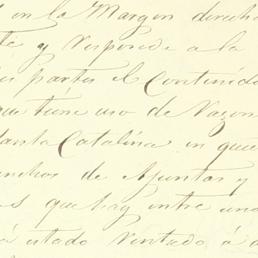 en la Margen derecha
y responde a la
partes el Contenido
que tiene uso de Razon
Santa Catalina en quie
de Apuntas y
que hay entre una
estado ventado á